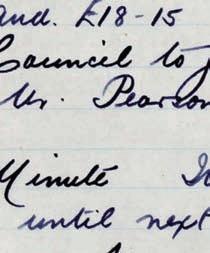 and. £18-15
Council to
Mr. Pearson
Minute
until next